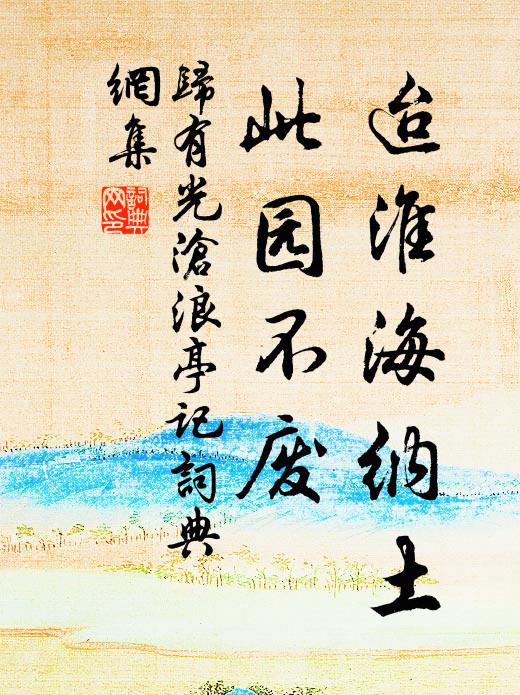 迨淮海纳土
此园不废
歸有光滄浪亭记詞典
網集
詞典
网印